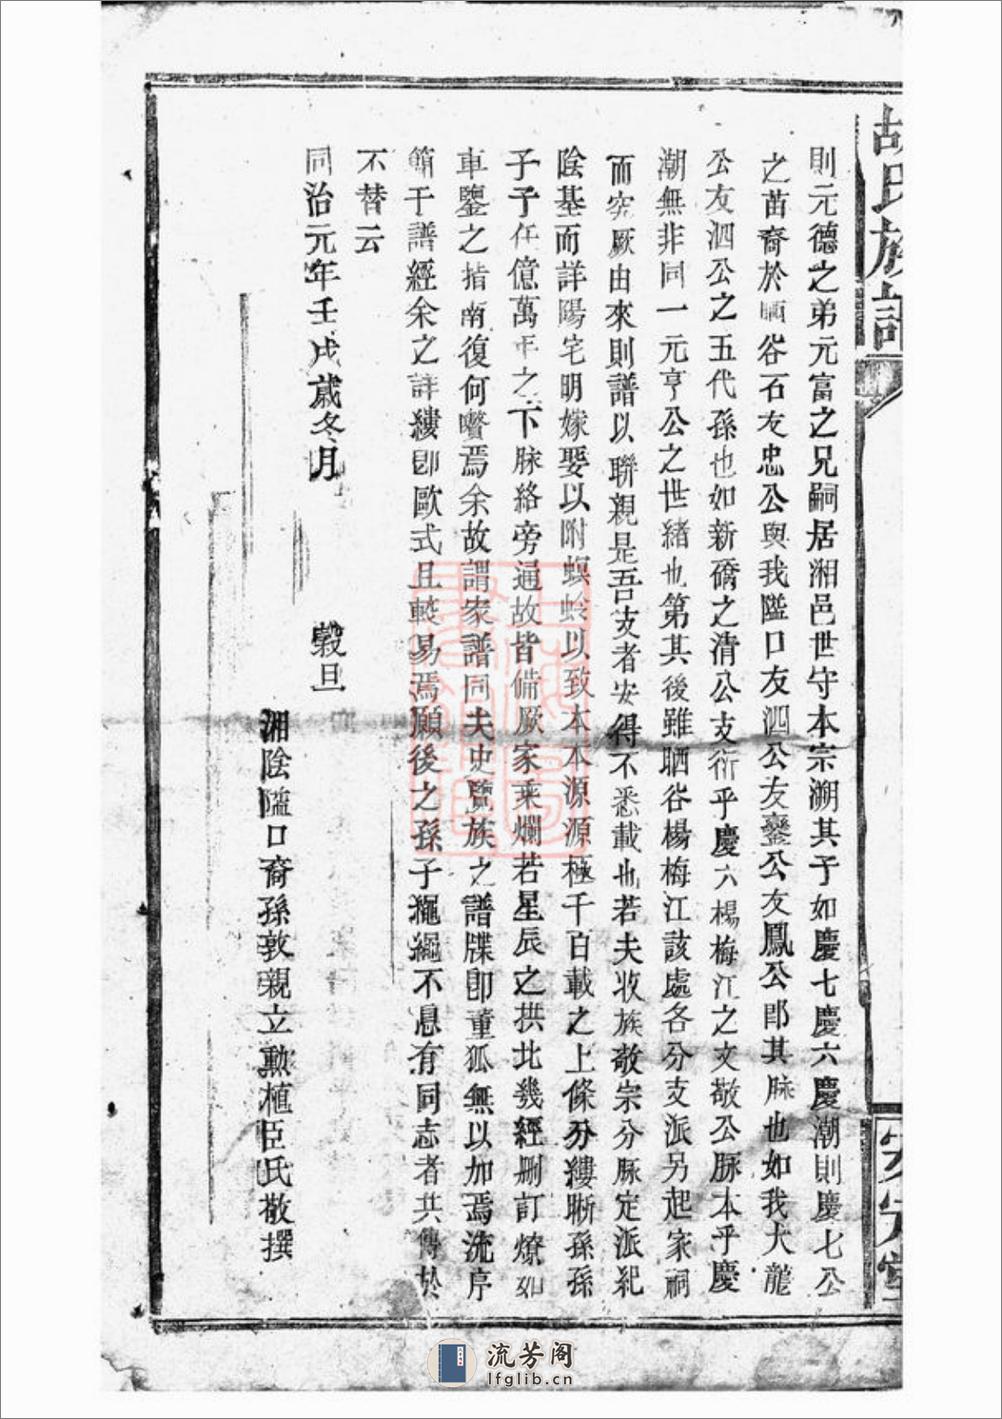 胡氏族譜
則元德之弟元富之兄嗣居湘邑世守本宗溯其子如慶七慶六慶潮則慶七公
之苗裔於晒谷石友忠公與我隘口友泗公友鑾公友鳳公郎其脉也如我大龍
公友泗公之五代孫也如新礄之清公支衍乎慶六楊梅江之文敬公脉本乎慶
潮無非同一元亨公之世緒也第其後雖晒谷楊梅江該處各分支派另起家祠
而究厥由來則譜以聯親是吾支者安得不悉載也若夫收族敬宗分脉定派紀
陰基而詳陽宅明嫁娶以附螟蛉以致本本源源極千百載之上條分縷晰孫孫
子子任億萬年之下脉絡旁通故皆備厥家乘爛若星辰之拱北幾經刪訂燎如
車鑒之指南復何贅焉余故謂家譜同夫史覽族之譜牒卽董狐無以加焉流序
簡于譜經余之詳縷卽歐式且較易焉願後之孫子繩繩不息有同志者共傳於
不替云
同治元年壬戌歲冬月 穀旦
湘陰隘口裔孫敦親立勲植臣氏敬撰
流芳阁
lfglib.cn